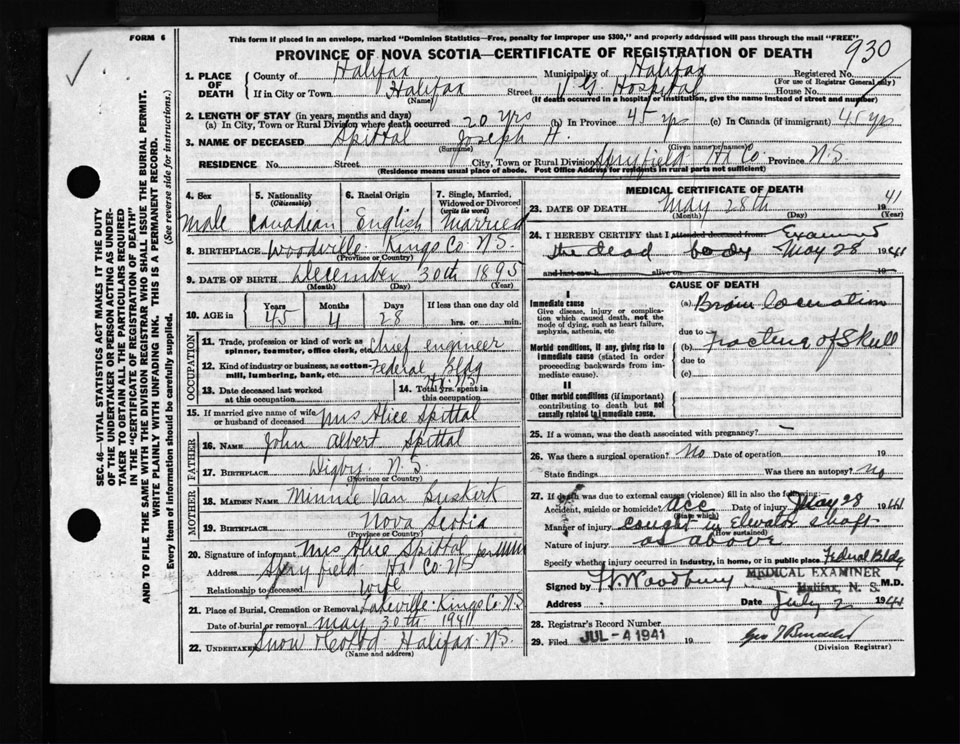 FORM 6
This form if placed in an envelope, marked "Dominion Statistics—Free, penalty for improper use $300," and properly addressed will pass through the mail "FREE"
PROVINCE OF NOVA SCOTIA—CERTIFICATE OF REGISTRATION OF DEATH
930
SEC. 46—VITAL STATISTICS ACT MAKES IT THE DUTY
OF THE UNDERTAKER OR PERSON ACTING AS UNDER-
TAKER TO OBTAIN ALL THE PARTICULARS REQUIRED
IN THE "CERTIFICATE OF REGISTRATION OF DEATH"
AND TO FILE THE SAME WITH THE DIVISION REGISTRAR WHO SHALL ISSUE THE BURIAL PERMIT.
WRITE PLAINLY WITH UNFADING INK. THIS IS A PERMANENT RECORD.
Every item of information should be carefully supplied. (See reverse side for instructions.)
1. PLACE OF DEATH
County of Halifax Municipality of Halifax Registered No.
(For use of Registrar General only)
If in City or Town Halifax Street V G Hospital House No.
(Name) (If death occurred in a hospital or institution, give the name instead of street and number)
2. LENGTH OF STAY (in years, months and days)
(a) In City, Town or Rural Division where death occurred 20 yrs (b) In Province 45 yrs (c) In Canada (if immigrant) 45 yrs
3. NAME OF DECEASED Spittal Joseph H.
(Surname) (Given name or names)
RESIDENCE No. Street City, Town or Rural Division Spryfield Hx Co. Province N.S
(Residence means usual place of abode. Post Office Address for residents in rural parts not sufficient)
4. Sex
male
5. Nationality
(Citizenship)
Canadian
6. Racial Origin
English
7. Single, Married, Widowed or Divorced
(write the word)
married
8. BIRTHPLACE Woodville Kings Co N.S.
(Province or Country)
9. DATE OF BIRTH December 30th 1895
(Month) (Day) (Year)
10. AGE in Years Months Days If less than one day old
45 4 28 hrs. or min.
OCCUPATION
11. Trade, profession or kind of work as
spinner, teamster, office clerk, etc. Chief engineer
12. Kind of industry or business, as cotton-
mill, lumbering, bank, etc. Federal Bldg
13. Date deceased last worked
at this occupation
14. Total yrs. spent in
this occupation
15. If married give name of wife
or husband of deceased Mrs Alice Spittal
FATHER
16. NAME John Albert Spittal
17. BIRTHPLACE Digby N.S
(Province or Country)
MOTHER
18. MAIDEN NAME Minnie Van Buskirk
19. BIRTHPLACE Nova Scotia
(Province or Country)
20. Signature of informant Mrs Alice Spittal per
Address Spryfield Hx Co NS
Relationship to deceased Wife
21. Place of Burial, Cremation or Removal Lakeville Kings Co N.S
Date of burial or removal May 30th 1941
22. UNDERTAKER Snow & Co Ltd Halifax N.S.
(Name and address)
MEDICAL CERTIFICATE OF DEATH
23. DATE OF DEATH May 28th 1941
(Month) (Day) (Year)
24. I HEREBY CERTIFY that I attended deceased from Examined
the dead body May 28 1941
and last saw h alive on 19
CAUSE OF DEATH
I
Immediate cause
Give disease, injury or complication which caused death, not the mode of dying, such as heart failure, asphyxia, asthenia, etc
(a) Brain laceration
due to
Morbid conditions, if any, giving rise to immediate cause (stated in order proceeding backwards from immediate cause).
(b) Fracture of Skull
due to
(c)
II
Other morbid conditions (if important) contributing to death but not causally related to immediate cause.
25. If a woman, was the death associated with pregnancy? –
26. Was there a surgical operation? No Date of operation 19
State findings Was there an autopsy? no
27. If death was due to external causes (violence) fill in also the following:
Accident, suicide or homicide? acc Date of injury May 28 1941
(State which)
Manner of injury caught in Elevator shaft
(How sustained)
Nature of injury as above
Specify whether injury occurred in industry, in home, or in public place Federal Bldg
Signed by Woodbury M.D.
MEDICAL EXAMINER
Halifax, N. S.
Address Date July 2 1941
28. Registrar's Record Number
29. Filed JUL -4 1941 19
(Division Registrar)